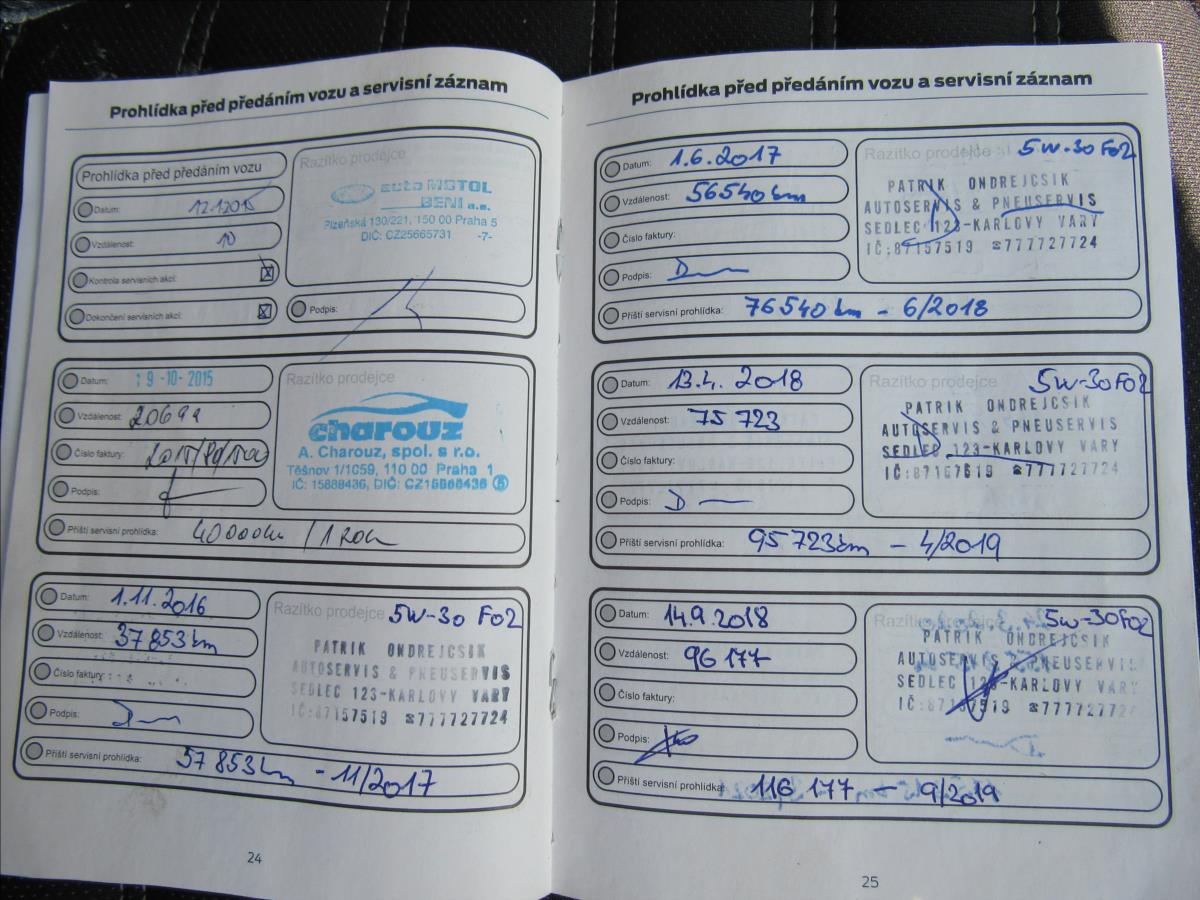 Prohlídka před předáním vozu a servisní záznam
Prohlídka před předáním vozu
Datum: 12.1.2015
Vzdálenost: 10
Kontrola servisních akcí:
Dokončení servisních akcí:
Razítko prodejce
auto MOTOL
BENI a.s.
Plzeňská 130/221, 150 00 Praha 5
DIČ: CZ25665731 -7-
Podpis:
Datum: 19-10-2015
Vzdálenost:
Číslo faktury:
Podpis:
Příští servisní prohlídka: 40000km / 1 rok
Razítko prodejce
charouz
A. Charouz, spol. s r.o.
Těšnov 1/1059, 110 00 Praha 1
IČ: 15888436, DIČ: CZ15888436 5
Datum: 1.11.2016
Vzdálenost: 37 853 km
Číslo faktury:
Podpis:
Příští servisní prohlídka: 57 853 km - 11/2017
Razítko prodejce 5W-30 F02
PATRIK ONDREJCSIK
AUTOSERVIS & PNEUSERVIS
SEDLEC 123-KARLOVY VARY
IČ:87157519 ☎777727724
24
Prohlídka před předáním vozu a servisní záznam
Datum: 1.6.2017
Vzdálenost: 56540 km
Číslo faktury:
Podpis:
Příští servisní prohlídka: 76540 km - 6/2018
Razítko prodejce 5W-30 F02
PATRIK ONDREJCSIK
AUTOSERVIS & PNEUSERVIS
SEDLEC 123-KARLOVY VARY
IČ:87157519 ☎777727724
Datum: 13.4. 2018
Vzdálenost: 75 723
Číslo faktury:
Podpis:
Příští servisní prohlídka: 95 723 km - 4/2019
Razítko prodejce 5W-30 F02
PATRIK ONDREJCSIK
AUTOSERVIS & PNEUSERVIS
SEDLEC 123-KARLOVY VARY
IČ:87157519 ☎777727724
Datum: 14.9.2018
Vzdálenost: 96 177
Číslo faktury:
Podpis:
Příští servisní prohlídka: 116 177 - 9/2019
Razítko prodejce 5W-30 F02
PATRIK ONDREJCSIK
AUTOSERVIS & PNEUSERVIS
SEDLEC 123-KARLOVY VARY
IČ:87157519 ☎777727724
25